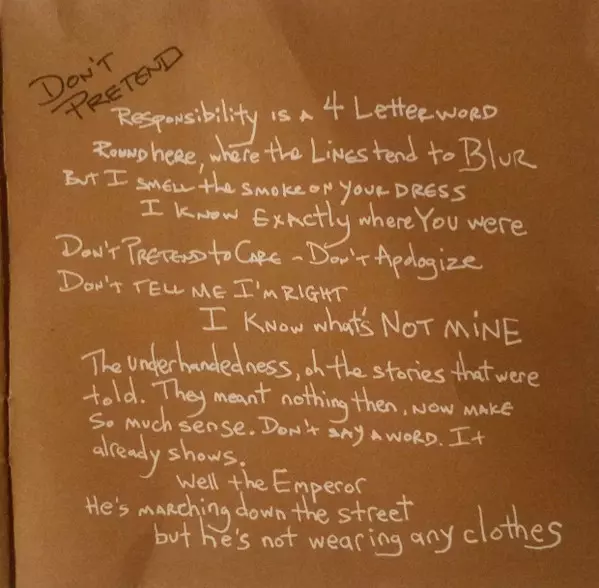 DON'T
PRETEND
RESPONSIBILITY IS A 4 LETTERWORD
ROUND here, where the LINES tend to BLUR
BUT I SMELL the SMOKE ON YOUR DRESS
I KNOW EXACTLY where You were
DON'T PRETEND to CARE - DON'T Apologize
DON'T TELL ME I'M RIGHT
I KNOW what's NOT MINE
The underhandedness, oh the stories that were
told. They meant nothing then, NOW MAKE
So much sense. DON'T SAY A WORD. It
already shows.
Well the Emperor
He's MARCHING down the street
but he's not wearing any clothes